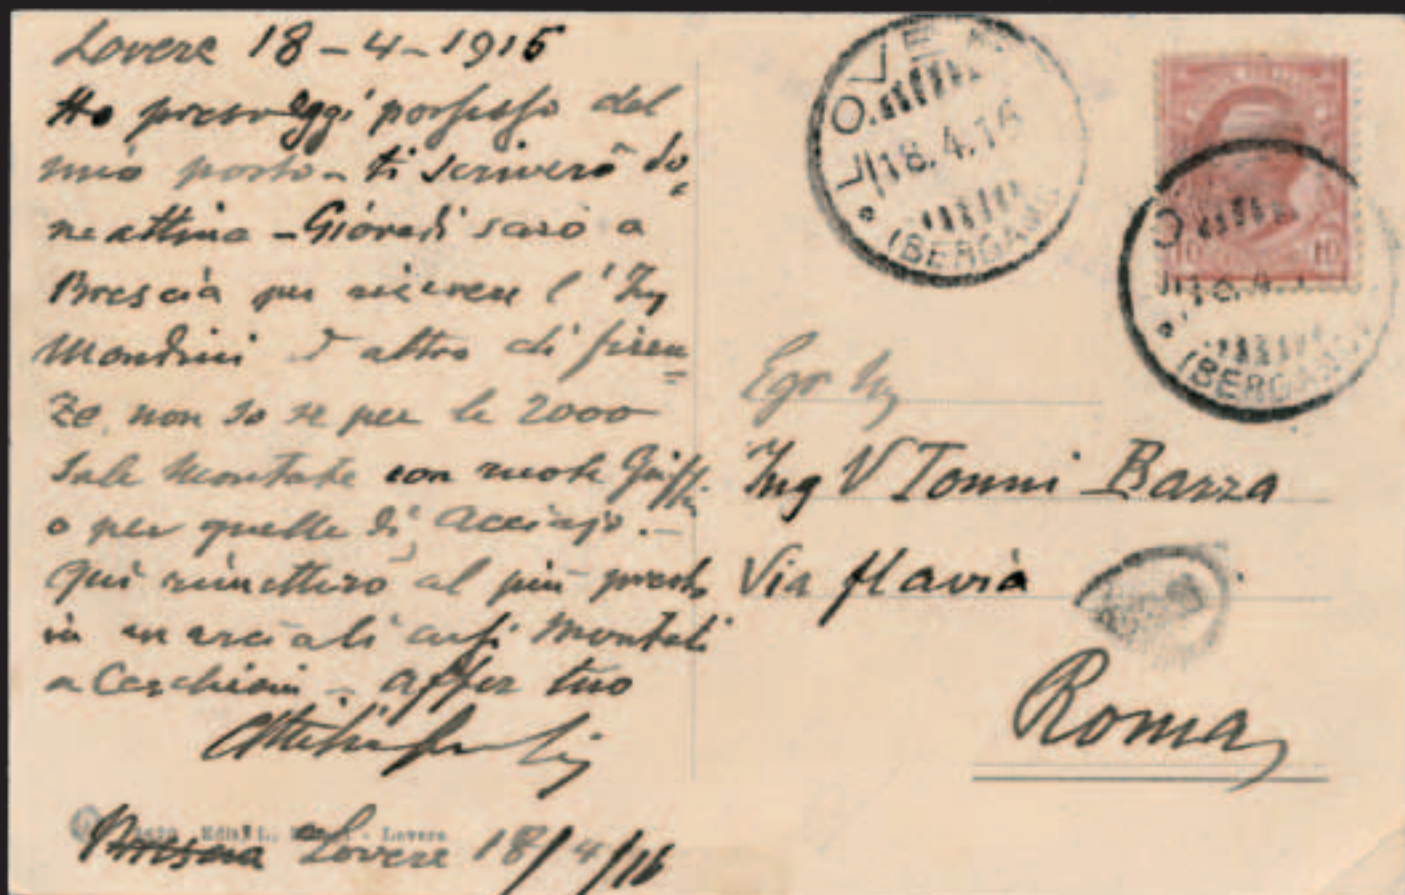 Lovere 18-4-1916
Ho preso oggi possesso del
mio posto - ti scriverò do=
mattina - Giovedì sarò a
Brescia per ricevere l'Ing
Mondini d altro di firen=
ze, non so se per le 2000
Sale montate con ruote
o per quelle di acciajo.-
Qui rimettero al più presto
in
a - affez tuo
Brescia Lovere 18/4/16
Edit. L. - Lovere
LOVERE
18.4.16
(BERGAMO)
10 10
(BERGAMO)
Egr
Ing V Tonni Bazza
Via flavia
Roma